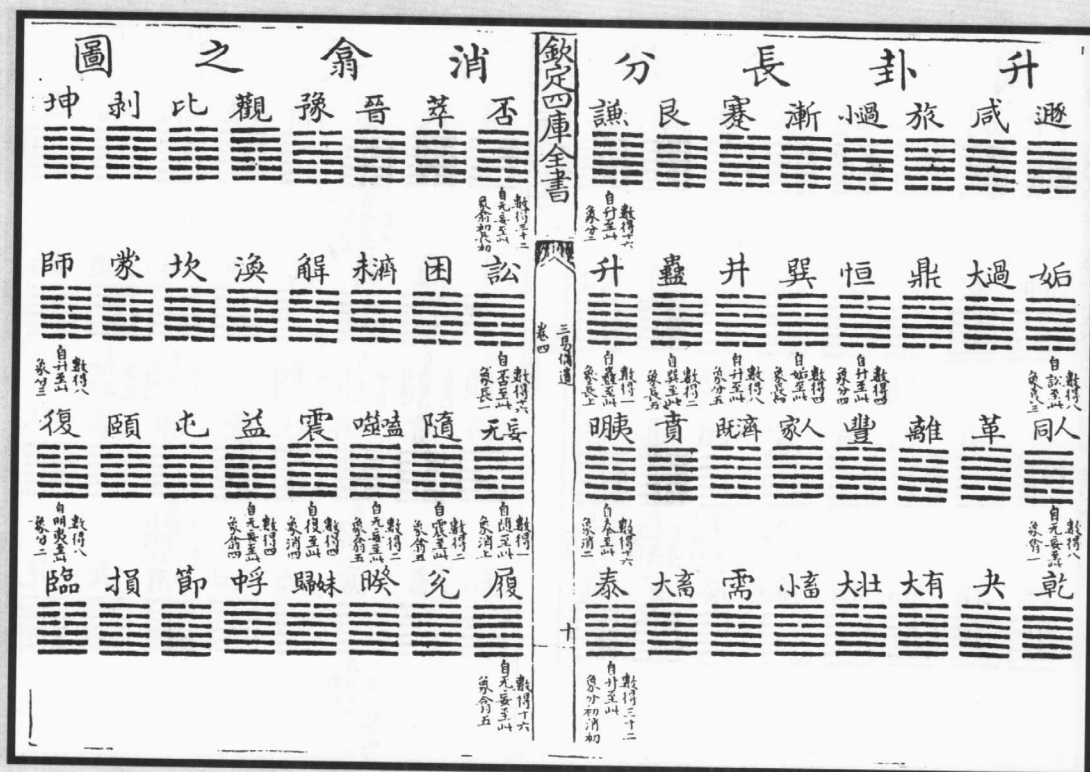 升卦長分
遯 咸 旅 小過 漸 蹇 艮 謙
數得十六
自升至此
象分二
姤 大過 鼎 恒 巽 井 蠱 升
數得八
自訟至此
象長三
數得四
自升至此
象分四
數得四
自姤至此
象長四
數得八
自升至此
象分五
數得二
自巽至此
象長五
數得一
自蠱至此
象長上
同人 革 離 豐 家人 既濟 賁 明夷
數得八
自无妄至此
象翕一
數得十六
自泰至此
象消二
乾 夬 大有 大壯 小畜 需 大畜 泰
數得三十二
自升至此
象分初消初
欽定四庫全書
三易備遺
卷四
十
消翕之圖
否 萃 晉 豫 觀 比 剥 坤
數得三十二
自无妄至此
象翕初長初
訟 困 未濟 解 渙 坎 蒙 師
數得十六
自否至此
象長一
數得八
自升至此
象分三
无妄 隨 噬嗑 震 益 屯 頤 復
數得一
自隨至此
象消上
數得二
自震至此
象翕五
數得二
自无妄至此
象翕五
數得四
自復至此
象消四
數得四
自无妄至此
象翕四
數得八
自明夷至此
象分二
履 兌 睽 歸妹 中孚 節 損 臨
數得十六
自无妄至此
象翕五